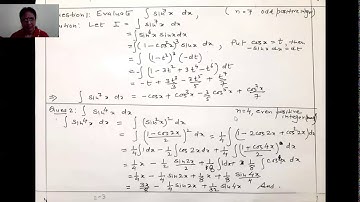 Question1: Evaluate ∫sin⁷x dx, (n=7 odd positive integer)
Solution: Let I = ∫sin⁷x dx
= ∫sin⁶x sinx dx
= ∫(1-cos²x)³ sinx dx, Put cosx = t, then
-sinx dx = dt
= ∫(1-t²)³ (-dt)
= -∫(1-3t²+3t⁴-t⁶) dt
= -t + 3t³/3 - 3t⁵/5 + t⁷/7
⇒ ∫sin⁷x dx = -cosx + cos³x - 3/5 cos⁵x + cos⁷x/7
Ques 2: ∫sin⁴x dx n=4, even positive integer
∫sin⁴x dx = ∫(sin²x)² dx
= ∫((1-cos2x)/2)² dx = 1/4 ∫(1-2cos2x+cos²2x)dx
= 1/4 ∫1dx - 1/2 ∫cos2x dx + 1/4 ∫(1+cos4x)/2 dx
= 1/4 x - 1/2 sin2x/2 + 1/8 ∫1dx + 1/8 ∫cos4x dx
= 1/4 x - 1/4 sin2x + 1/8 x + 1/8 sin4x/4
= 3x/8 - 1/4 sin2x + 1/32 sin4x Ans.